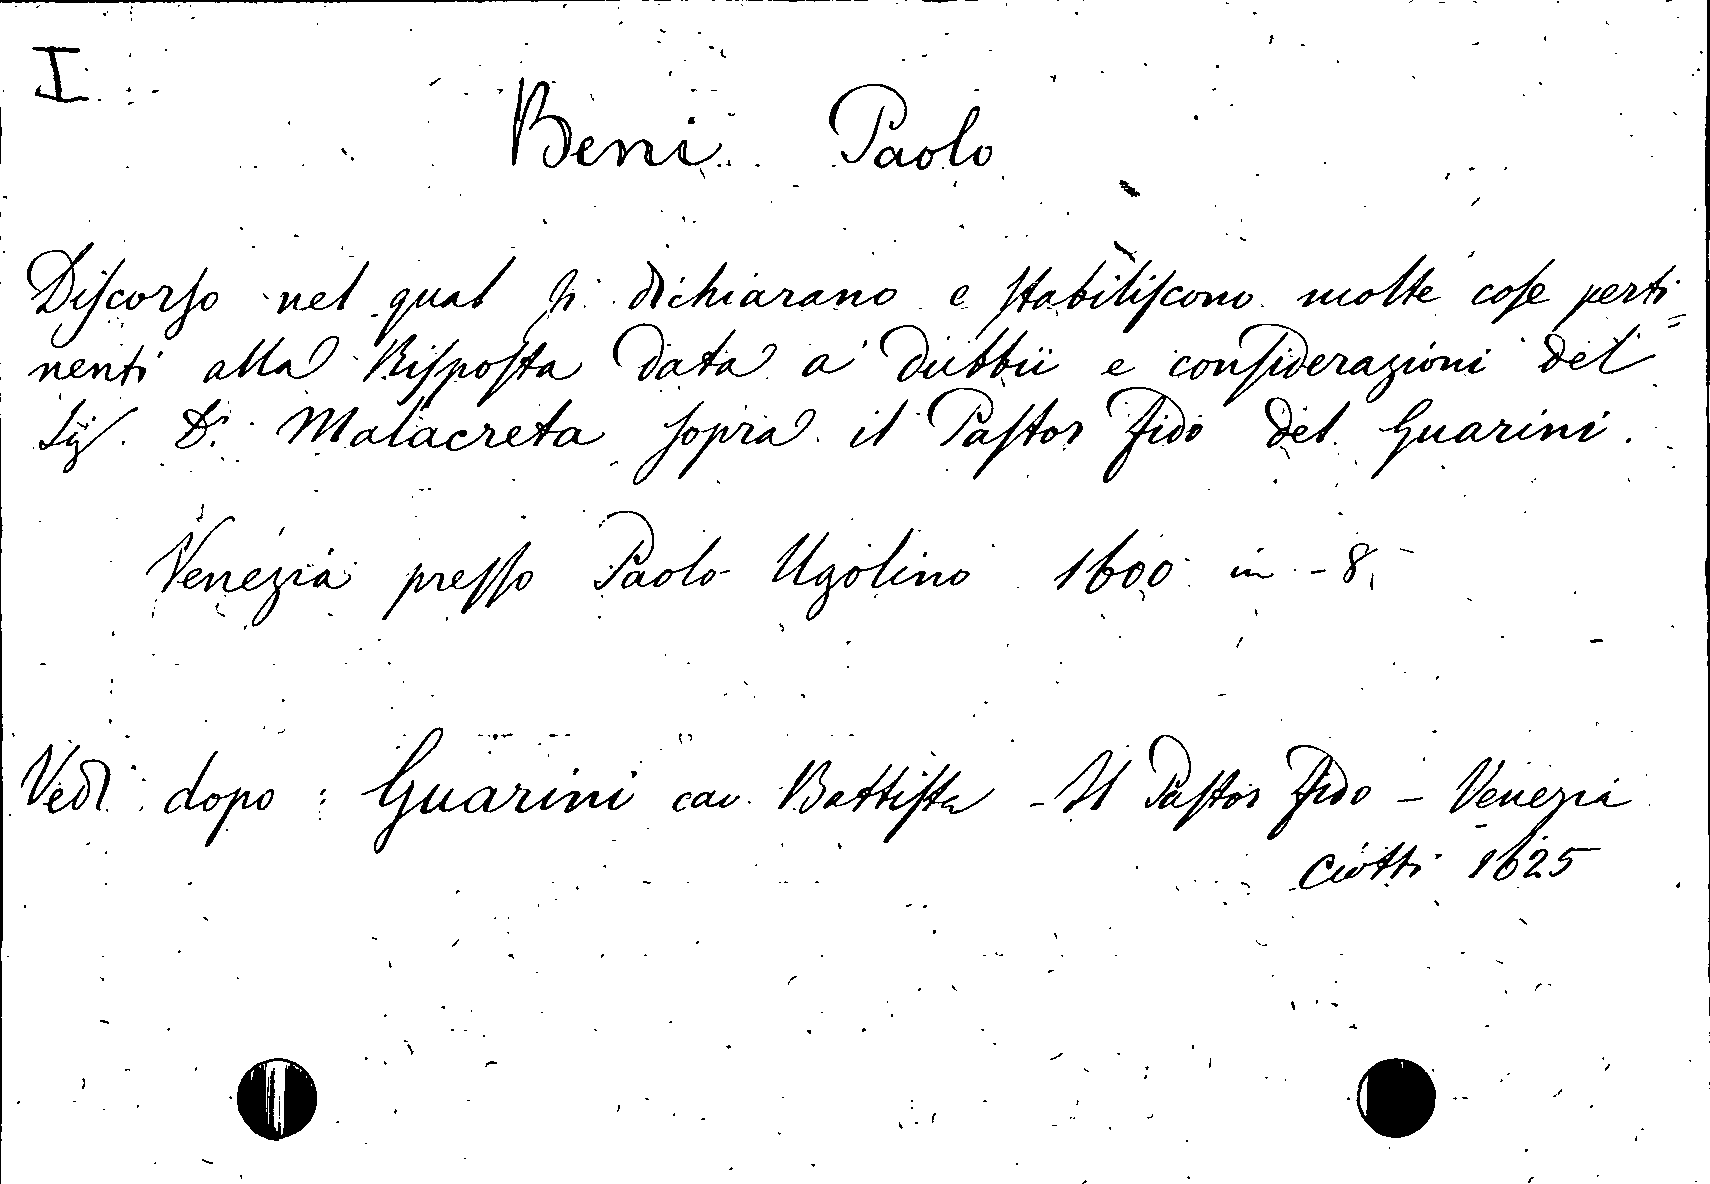 I
Beni Paolo
Discorso nel qual si dichiarano e stabiliscono molte cose perti=
nenti alla Risposta data a' dubbii e considerazioni del
Sig. D. Malacreta sopra il Pastor fido del Guarini.
Venezia presso Paolo Ugolino 1600 in - 8.
Vedi dopo : Guarini cav. Battista - Il Pastor fido - Venezia
Ciotti 1625